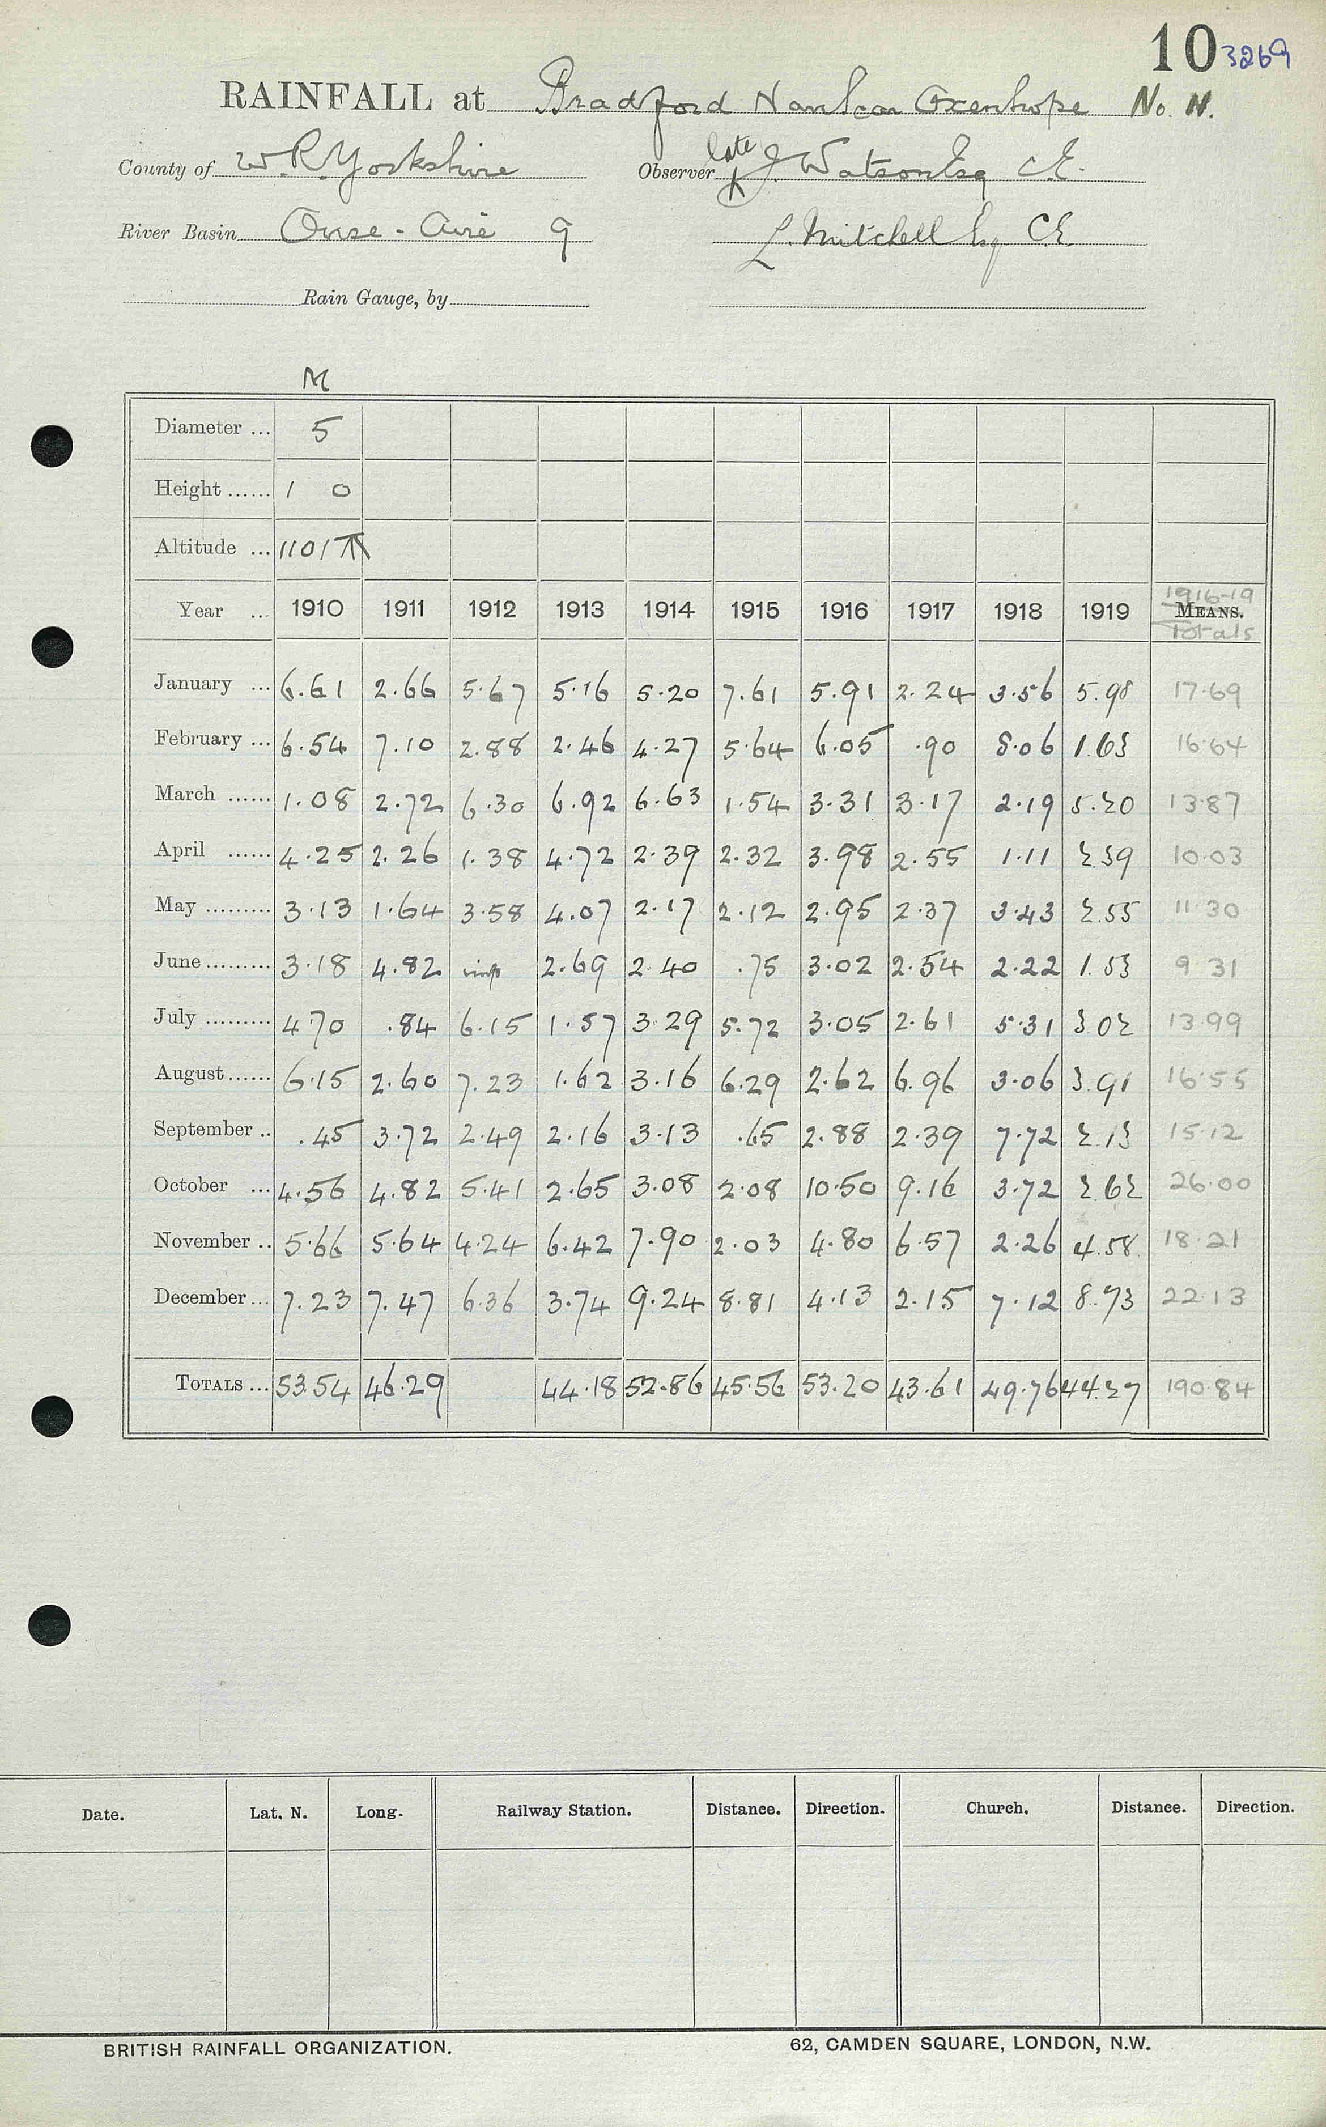 10 3269
RAINFALL at Bradford Nan Scar Oxenhope No. 11.
County of W. R. Yorkshire Observer late J Watson Esq C.E.
River Basin Ouse - Aire 9 L. Mitchell Esq C.E.
Rain Gauge, by
M
Diameter ... 5
Height ...... 1 0
Altitude ... 1101
Year ... 1910 1911 1912 1913 1914 1915 1916 1917 1918 1919 1916-19 MEANS. Totals
January ... 6.61 2.66 5.67 5.16 5.20 7.61 5.91 2.24 3.56 5.98 17.69
February ... 6.54 7.10 2.88 2.46 4.27 5.64 6.05 .90 8.06 1.63 16.64
March ...... 1.08 2.72 6.30 6.92 6.63 1.54 3.31 3.17 2.19 5.20 13.87
April ...... 4.25 2.26 1.38 4.72 2.39 2.32 3.98 2.55 1.11 2.39 10.03
May ......... 3.13 1.64 3.58 4.07 2.17 2.12 2.95 2.37 3.43 2.55 11.30
June ......... 3.18 4.82 2.69 2.40 .75 3.02 2.54 2.22 1.53 9.31
July ......... 4.70 .84 6.15 1.57 3.29 5.72 3.05 2.61 5.31 3.02 13.99
August ...... 6.15 2.60 7.23 1.62 3.16 6.29 2.62 6.96 3.06 3.91 16.55
September .. .45 3.72 2.49 2.16 3.13 .65 2.88 2.39 7.72 2.13 15.12
October ... 4.56 4.82 5.41 2.65 3.08 2.08 10.50 9.16 3.72 2.62 26.00
November .. 5.66 5.64 4.24 6.42 7.90 2.03 4.80 6.57 2.26 4.58 18.21
December ... 7.23 7.47 6.36 3.74 9.24 8.81 4.13 2.15 7.12 8.73 22.13
TOTALS ... 53.54 46.29 44.18 52.86 45.56 53.20 43.61 49.76 44.27 190.84
Date. Lat. N. Long. Railway Station. Distance. Direction. Church. Distance. Direction.
BRITISH RAINFALL ORGANIZATION. 62, CAMDEN SQUARE, LONDON, N.W.